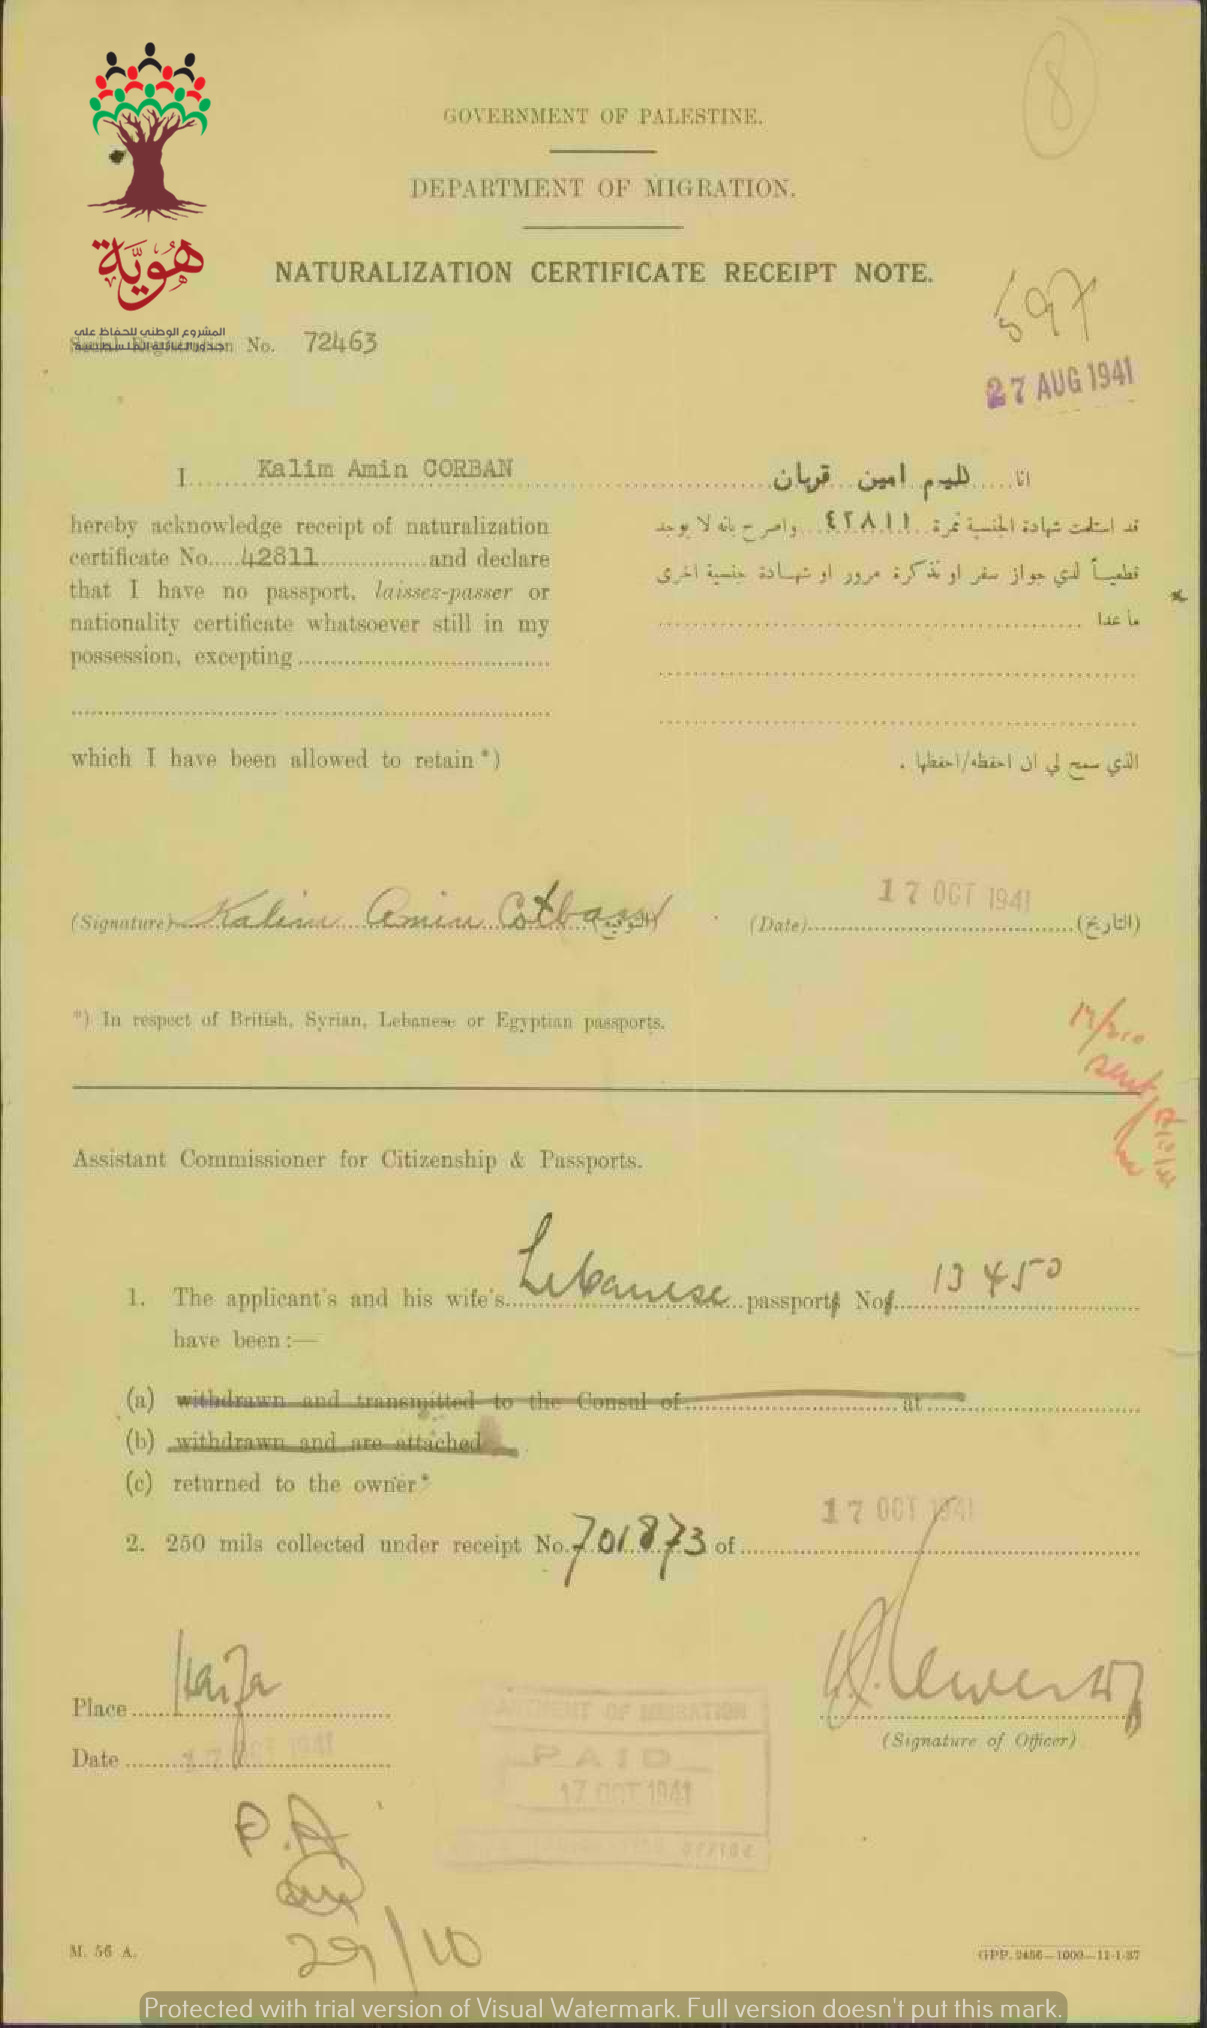 8
GOVERNMENT OF PALESTINE.
DEPARTMENT OF MIGRATION.
هويّة
NATURALIZATION CERTIFICATE RECEIPT NOTE.
المشروع الوطني للحفاظ على
جذور العائلة الفلسطينية
Serial Registration No. 72463
597
27 AUG 1941
I Kalim Amin CORBAN
انا كليم امين قربان
hereby acknowledge receipt of naturalization
certificate No. 42811 and declare
that I have no passport, laissez-passer or
nationality certificate whatsoever still in my
possession, excepting
which I have been allowed to retain *)
قد استلمت شهادة الجنسية نمرة ٤٢٨١١ واصرح بانه لا يوجد
قطعياً لدي جواز سفر او تذكرة مرور او شهادة جنسية اخرى
ما عدا
الذي سمح لي ان احفظه/احفظها .
17 OCT 1941
(Signature) Kalim Amin Cotban (التوقيع)
(Date) (التاريخ)
*) In respect of British, Syrian, Lebanese or Egyptian passports.
sent
Assistant Commissioner for Citizenship & Passports.
1. The applicant's and his wife's Lebanese passports Nos. 13450
have been :—
(a) withdrawn and transmitted to the Consul of at
(b) withdrawn and are attached
(c) returned to the owner*
17 OCT 1941
2. 250 mils collected under receipt No. 701873 of
Place Haifa
(Signature of Officer)
Date 17 OCT 1941
DEPARTMENT OF MIGRATION
PAID
17 OCT 1941
P.A
29/10
M. 56 A.
GPP. 2456—1000—12-1-37
Protected with trial version of Visual Watermark. Full version doesn't put this mark.